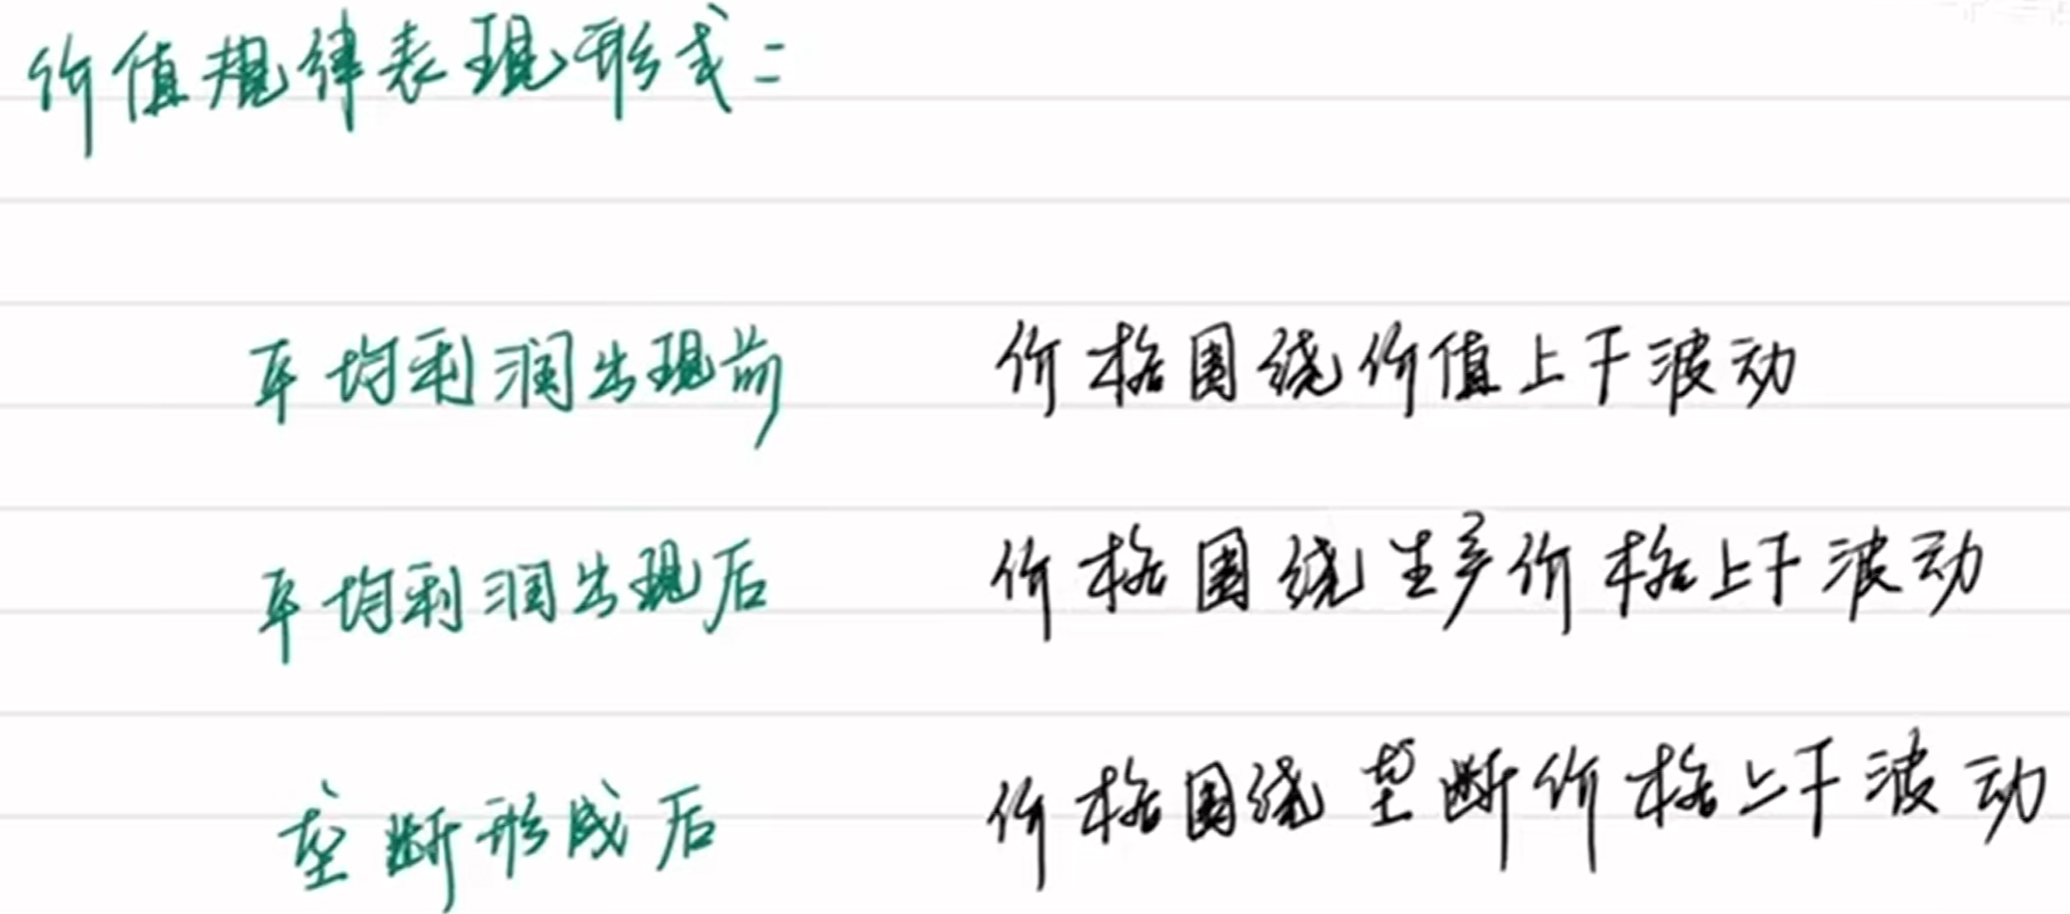 价值规律表现形式:
平均利润出现前 价格围绕价值上下波动
平均利润出现后 价格围绕生产价格上下波动
垄断形成后 价格围绕垄断价格上下波动